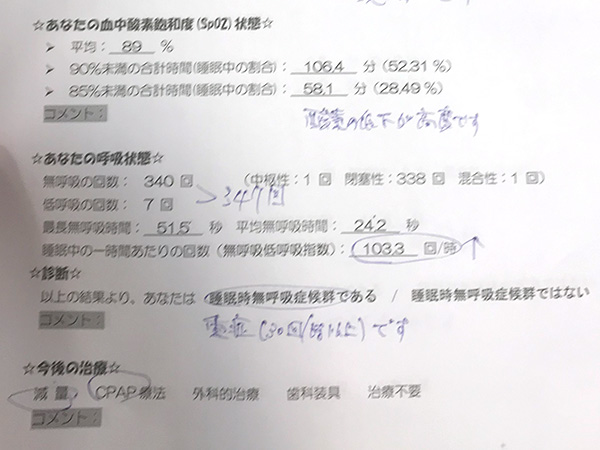 ☆あなたの血中酸素飽和度(SpO2)状態☆
➢ 平均: 89 %
➢ 90%未満の合計時間(睡眠中の割合): 106.4 分(52.31 %)
➢ 85%未満の合計時間(睡眠中の割合): 58.1 分(28.49 %)
コメント:
酸素の低下が高度です
☆あなたの呼吸状態☆
無呼吸の回数: 340 回 (中枢性: 1 回 閉塞性: 338 回 混合性: 1 回)
低呼吸の回数: 7 回
> 347回
最長無呼吸時間: 51.5 秒 平均無呼吸時間: 24.2 秒
睡眠中の一時間あたりの回数(無呼吸低呼吸指数): 103.3 回/時 ↑
☆診断☆
以上の結果より、あなたは (睡眠時無呼吸症候群である / 睡眠時無呼吸症候群ではない
コメント:
重症(30回/時以上)です
☆今後の治療☆
減量 CPAP療法 外科的治療 歯科装具 治療不要
コメント: